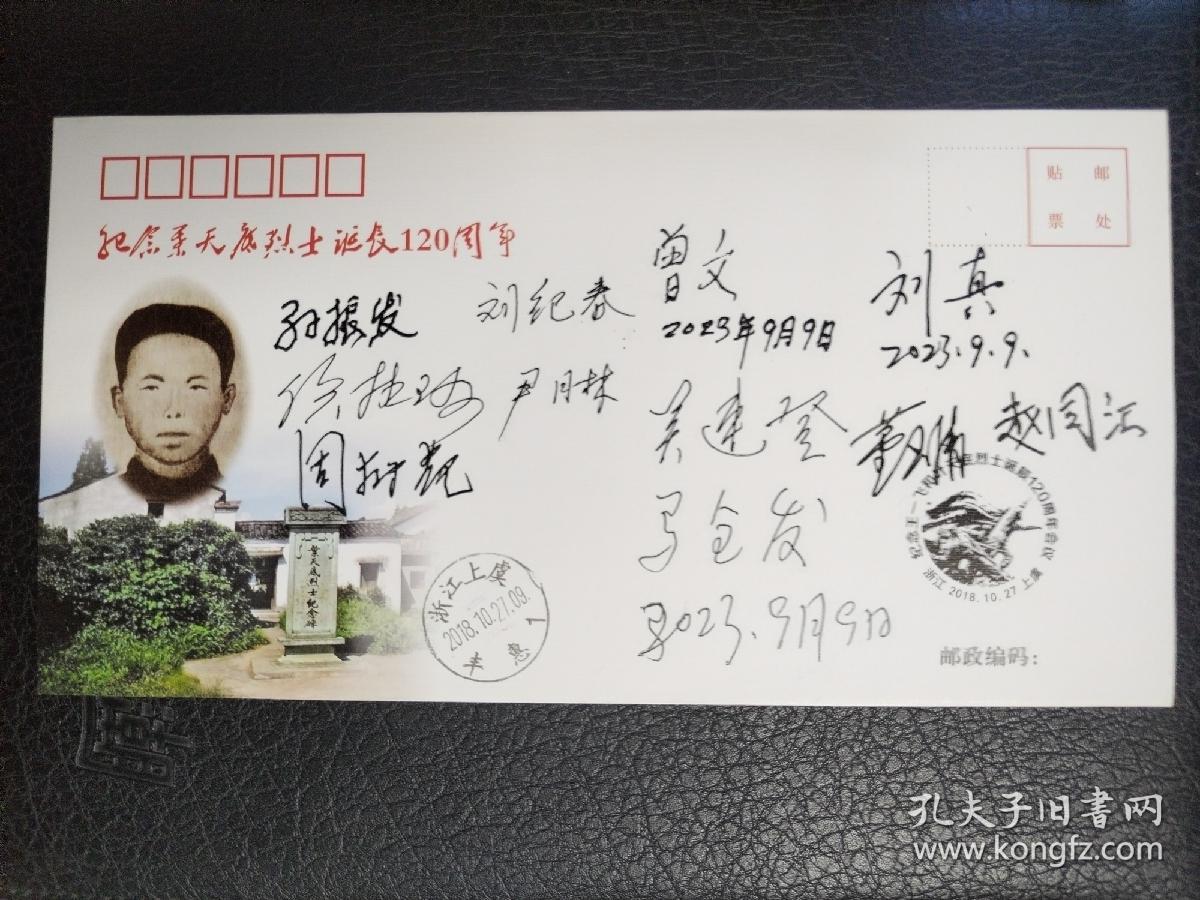 纪念叶天底烈士诞辰120周年
贴 邮
票 处
孙振发
刘纪春
曾文
2023年9月9日
刘真
2023.9.9.
尹月林
吴建登
赵同江
周树凯
马全发
2023.9月9日
葉天底烈士紀念碑
浙江上虞
2018.10.27.09.
丰惠 1
烈士诞辰120周年会议
浙江 2018.10.27 上虞
邮政编码:
孔夫子旧書网
www.kongfz.com